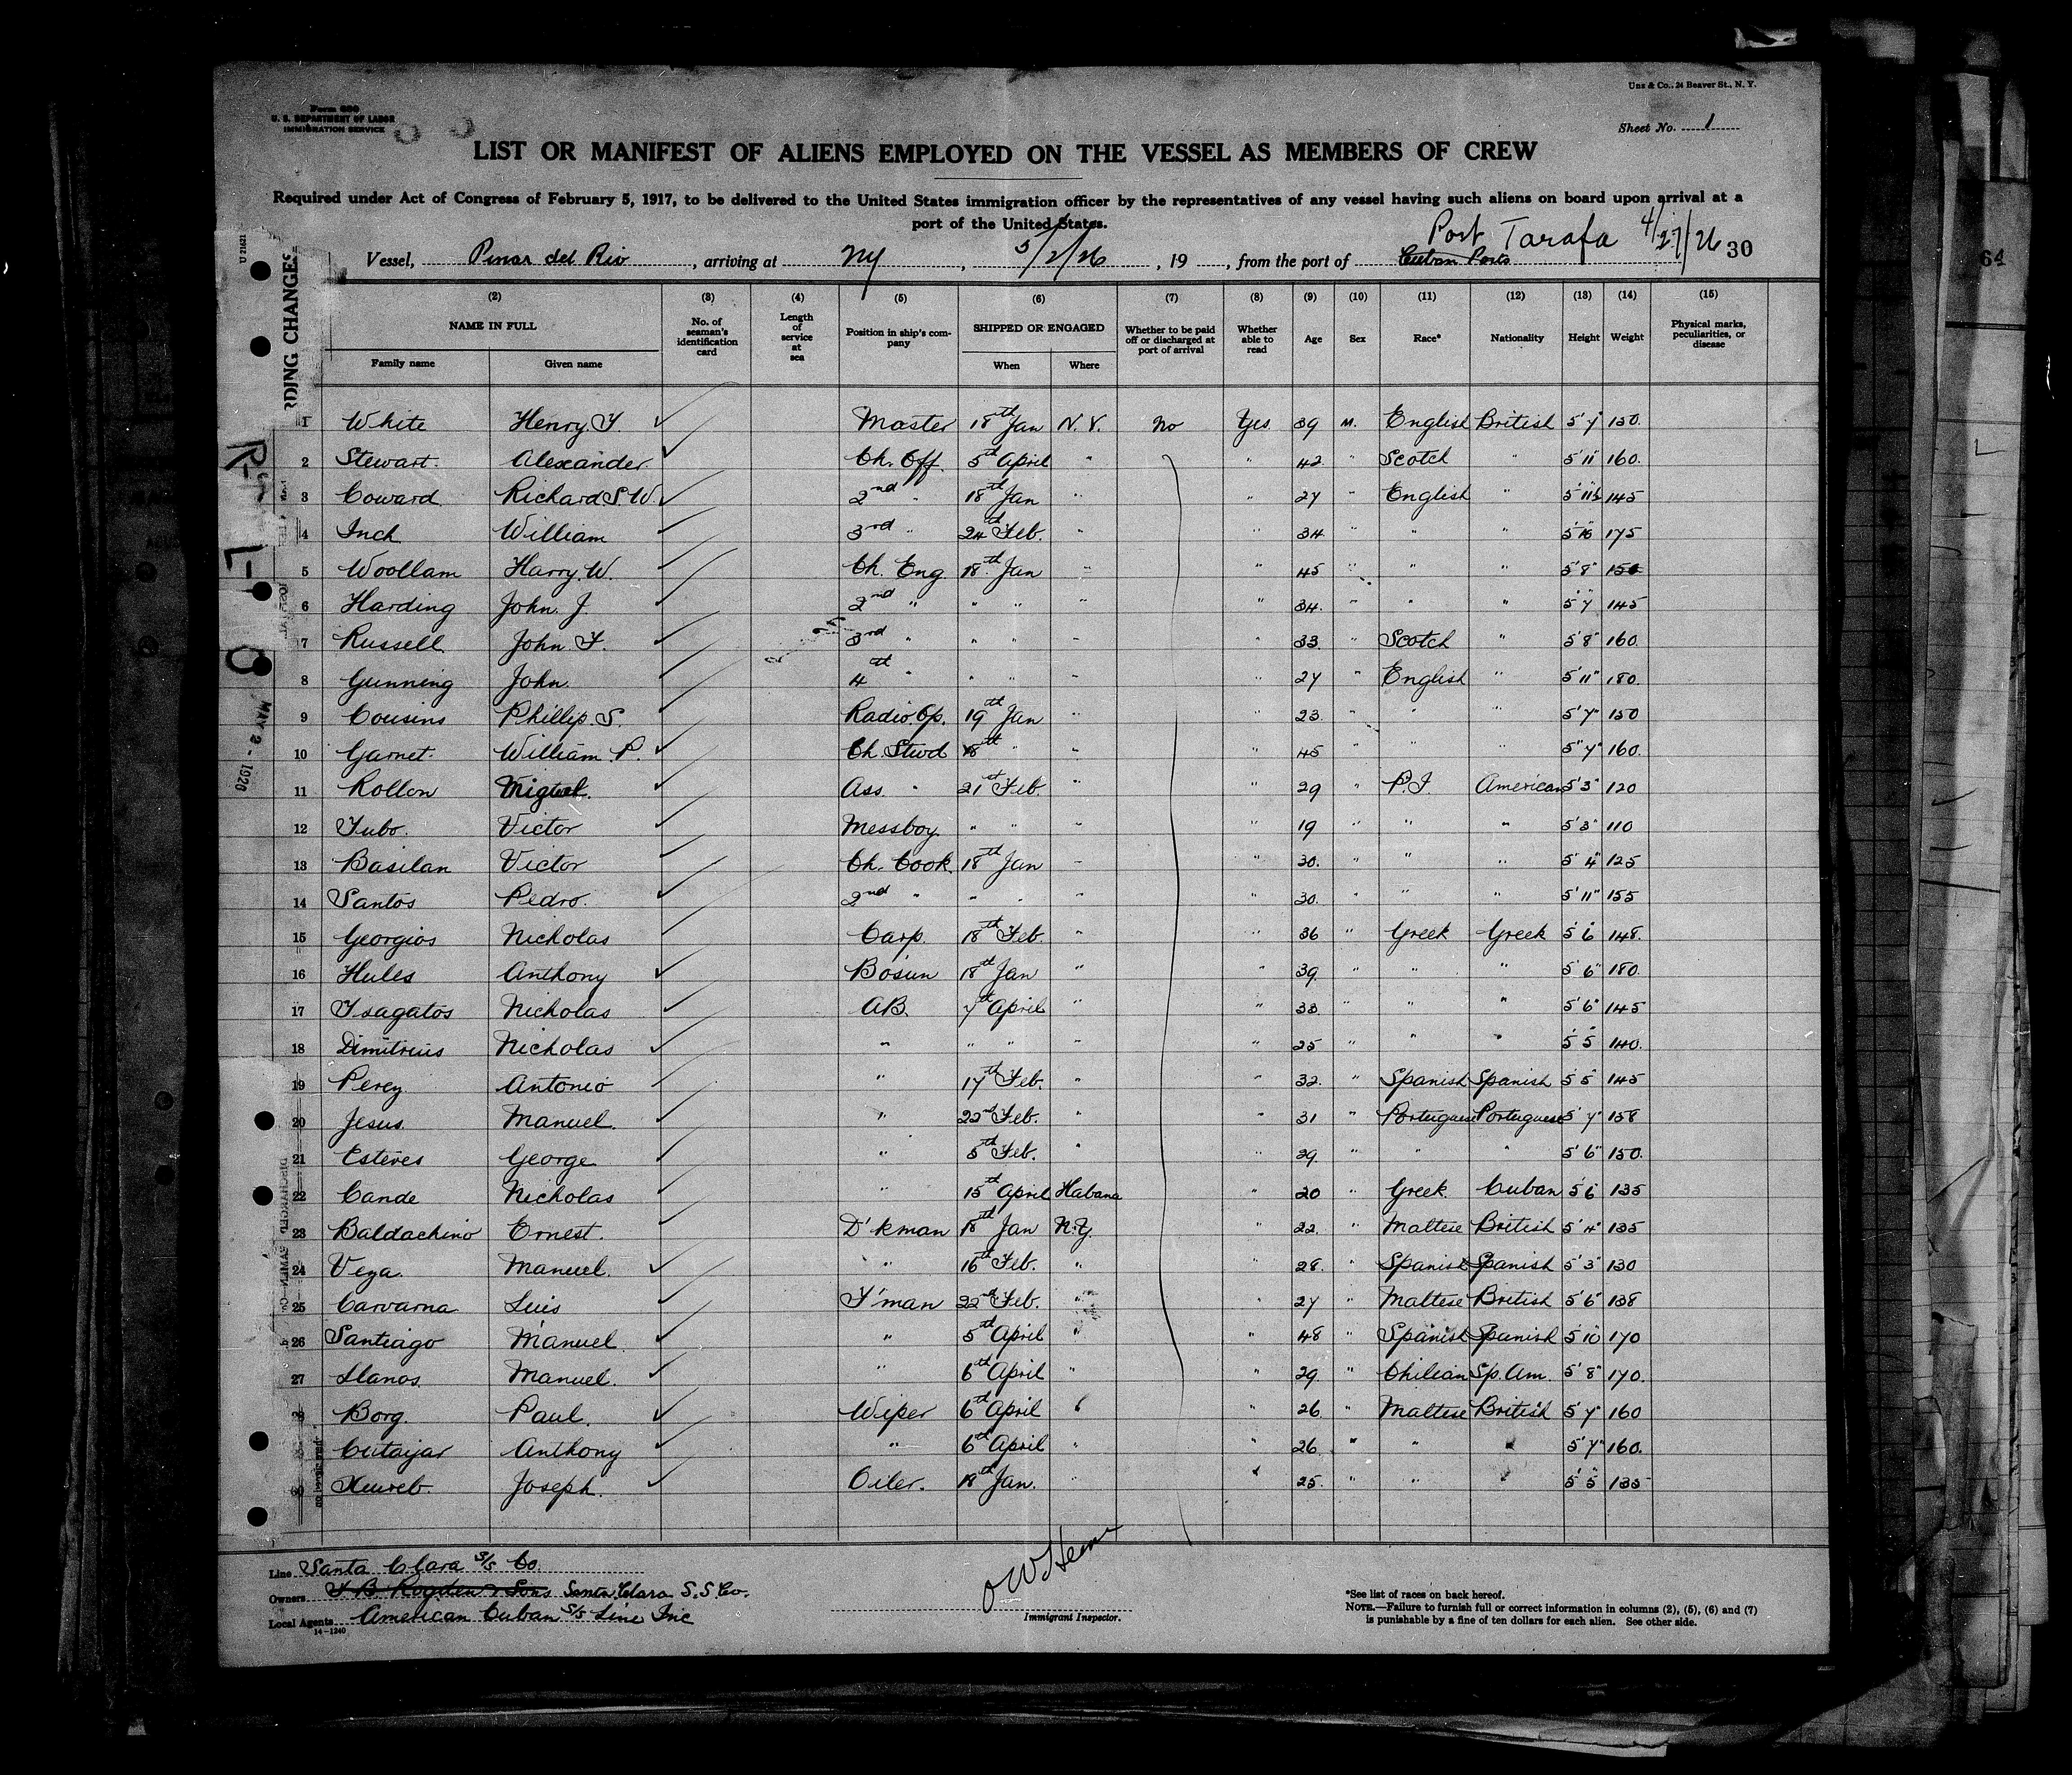 Uns & Co., 24 Beaver St., N. Y.
Form 680
U. S. DEPARTMENT OF LABOR
IMMIGRATION SERVICE
Sheet No. 1
LIST OR MANIFEST OF ALIENS EMPLOYED ON THE VESSEL AS MEMBERS OF CREW
Required under Act of Congress of February 5, 1917, to be delivered to the United States immigration officer by the representatives of any vessel having such aliens on board upon arrival at a
port of the United States.
Port Tarafa 4/27/26
Vessel, Pinar del Rio, arriving at NY, 5/2/26, 19 , from the port of Cuban Ports 30
64
U 21621
RDING CHANGES
R-
L-
O
MAY 2 - 1926
(2) (3) (4) (5) (6) (7) (8) (9) (10) (11) (12) (13) (14) (15)
NAME IN FULL No. of seaman's identification card Length of service at sea Position in ship's company SHIPPED OR ENGAGED Whether to be paid off or discharged at port of arrival Whether able to read Age Sex Race* Nationality Height Weight Physical marks, peculiarities, or disease
Family name Given name When Where
1 White Henry. F. Master 18th Jan N.Y. No Yes 39 M. English British 5'7" 150.
2 Stewart. Alexander. Ch. Off. 5th April " " 42 " Scotch " 5'11" 160.
3 Coward Richard. S. W. 2nd " 18th Jan " " 27 " English " 5'11½ 145
4 Inch William 3rd " 24th Feb. " " 34 " " " 5'10" 175
5 Woollam Harry. W. Ch. Eng 18th Jan " " 45 " " " 5'8" 150
6 Harding John. J. 2nd " " " " " 34. " " " 5'7" 145
7 Russell John F. 3rd " " " " " 33. " Scotch " 5'8" 160.
8 Gunning John. 4th " " " " " 27 " English " 5'11" 180.
9 Cousins Phillip. S. Radio. Op. 19th Jan " " 23. " " " 5'7" 150
10 Garnet. William. P. Ch. Stwd 18th " " " 45 " " " 5'7" 160.
11 Rollon Miguel. Ass. " 21st Feb. " " 29 " P.I. American 5'3" 120
12 Tubo. Victor Messboy. " " " " 19 " " " 5'3" 110
13 Basilan Victor Ch. Cook. 18th Jan " " 30. " " " 5'4" 125
14 Santos Pedro. 2nd " " " " " 30. " " " 5'11" 155
15 Georgios Nicholas Carp. 18th Feb. " " 36 " Greek Greek 5'6 148.
16 Hules Anthony Bosun 18th Jan " " 39. " " " 5'6" 180.
17 Tsagatos Nicholas AB. 7th April " " 33 " " " 5'6" 145
18 Dimitrius Nicholas " " " " " 25 " " " 5'5" 140.
19 Perez Antonio " 17th Feb. " " 32. " Spanish Spanish 5'5" 145
20 Jesus. Manuel. " 22nd Feb. " " 31 " Portuguese Portuguese 5'7" 158
21 Esteves George " 5th Feb. " " 29. " " " 5'6" 150.
22 Cande Nicholas " 15th April Habana " 20 " Greek. Cuban 5'6 135
23 Baldachino Ernest. D'kman 18th Jan N.Y. " 22. " Maltese British 5'4" 135
24 Vega. Manuel. " 16th Feb. " " 28. " Spanish Spanish 5'3" 130
25 Carvarna Luis F'man 22nd Feb. " " 27 " Maltese British 5'6" 138
26 Santiago Manuel. " 5th April " " 48 " Spanish Spanish 5'10 170
27 Llanos. Manuel. " 6th April " " 29. " Chilean Sp. Am. 5'8" 170.
28 Borg. Paul. Wiper 6th April " " 26. " Maltese British 5'7" 160
Cutajar Anthony " 6th April " " 26 " " " 5'7" 160.
30 Xuereb. Joseph. Oiler. 18th Jan. " " 25. " " " 5'5" 135
Line Santa Clara S/S Co.
Owners Sons Santa Clara S.S Co.
Local Agents American Cuban S/S Line Inc
14-1240
Immigrant Inspector.
*See list of races on back hereof.
NOTE.—Failure to furnish full or correct information in columns (2), (5), (6) and (7)
is punishable by a fine of ten dollars for each alien. See other side.